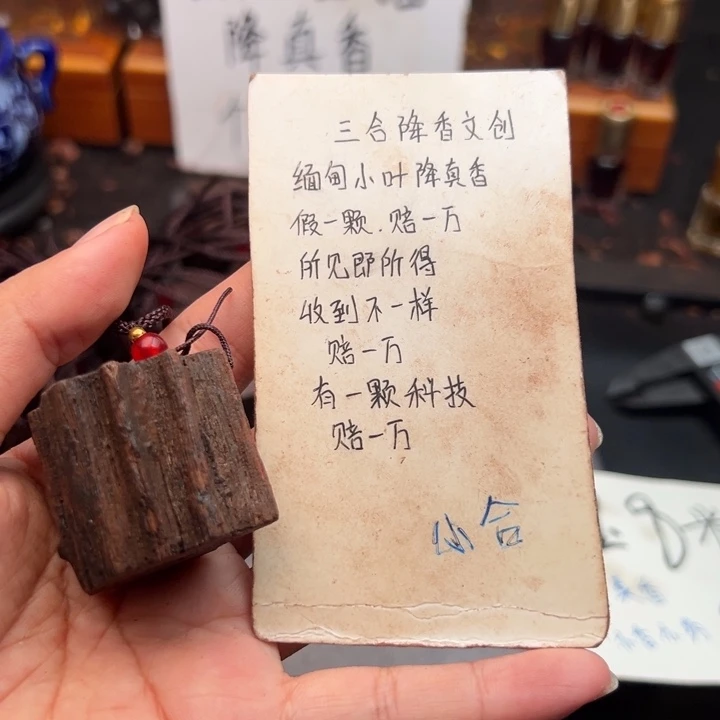 降真香
三合降香文创
缅甸小叶降真香
假一颗.赔一万
所见即所得
收到不一样
赔一万
有一颗科技
赔一万
小合